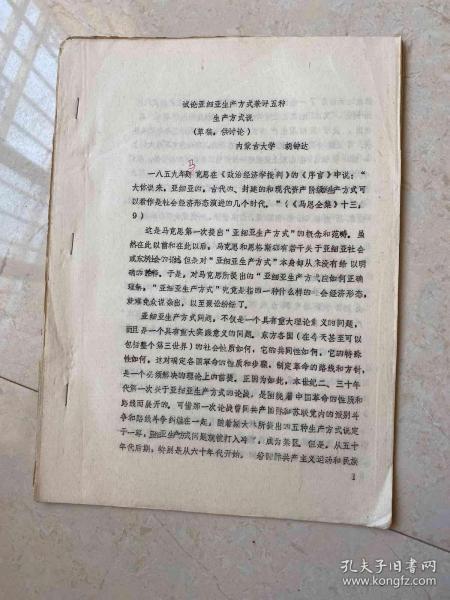 试论亚细亚生产方式兼评五种
生产方式说
(草稿，供讨论)
内蒙古大学 胡钟达
马
一八五九年 克思在《政治经济学批判》的《序言》中说：“
大体说来，亚细亚的，古代的、封建的和现代资产阶级生产方式可
以看作是社会经济形态演进的几个时代。”（《马恩全集》十三，
9）
这是马克思第一次提出“亚细亚生产方式”的概念和范畴。虽
然在此以前和在此以后，马克思和恩格斯都有若干关于亚细亚社会
或东方社会的论述但是对“亚细亚生产方式”本身却从来没有给以明
确的 。于是，对马克思所提出的“亚细亚生产方式应如何正确
理解，“亚细亚生产方式”究竟是指的一种什么样的社会经济形态，
就难免众说杂出，以至聚讼纷纭了。
亚细亚生产方式问题，不仅是一个具有重大理论意义的问题，
而且是一个具有重大实践意义的问题。东方各国（在今天甚至可以
包括整个第三世界）的社会性质如何，它的共同性如何，它的特殊
性如何，这对确定各国革命的性质和步骤，制定革命的路线和方针，
是一个必须解决的理论上的前提。正因为如此，本世纪二、三十年
代第一次关于亚细亚生产方式的论战，是围绕着中国革命的性质和
路线而展开的。可惜那一次论战曾同共产国际和苏联党内的派别斗
争和路线斗争纠缠在一起。随着斯大林所提出的五种生产方式说定
于一尊，亚细亚生产方式问题就被打入冷 ，成为禁区。但是，从五十
年代后期，特别是从六十年代开始， 国际共产主义运动和民族
1
孔夫子旧书网
www.kongfz.com